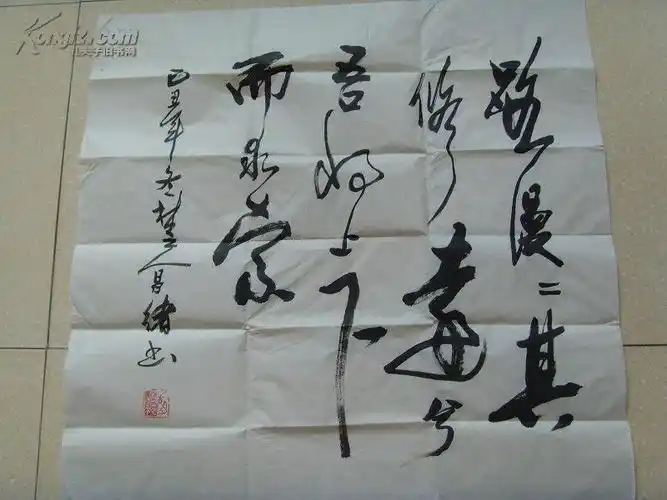 路漫二其
修远兮
吾将上下
而求索
己丑年冬楚人昌绪书
Kongfz.com
孔夫子旧书网